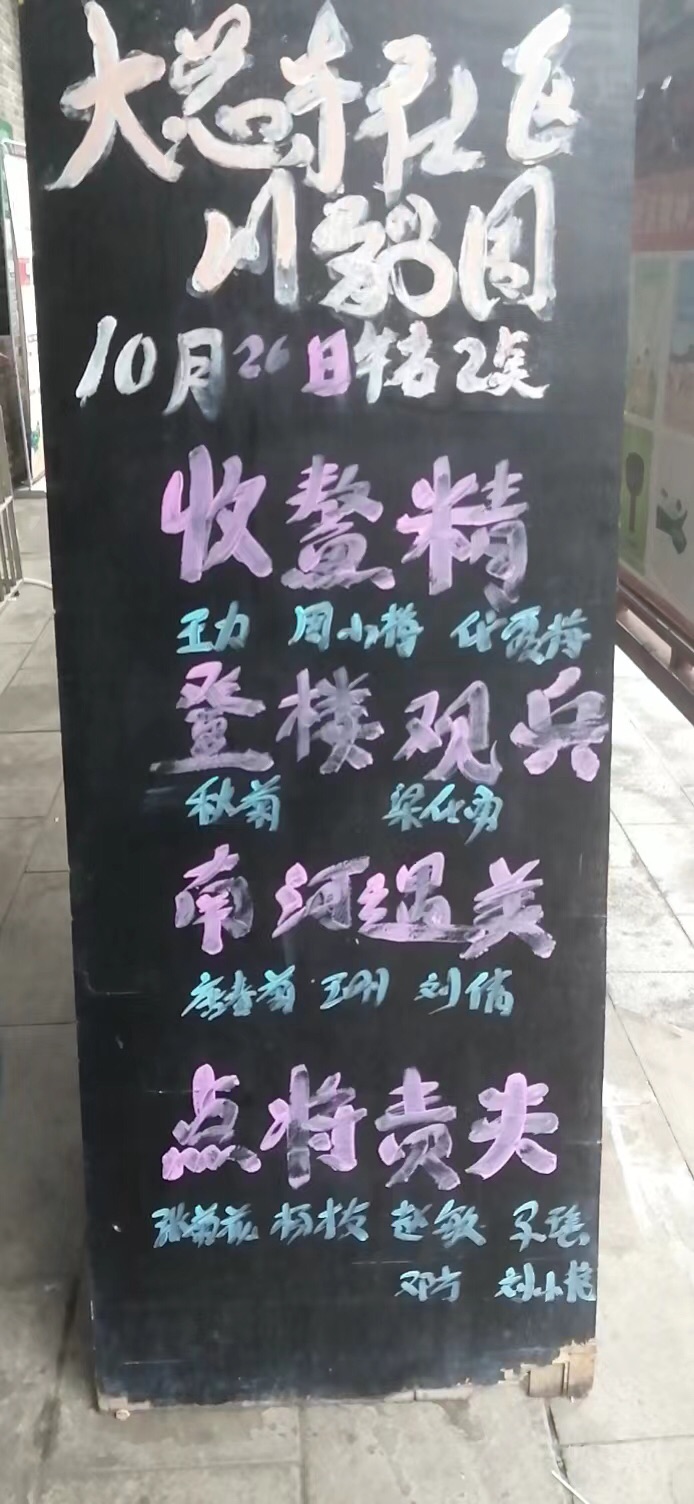 大慈寺社区
川剧团
10月26日特邀
收鳌精
王力 周小梅 代秀梅
登楼观兵
秋菊 梁代勇
南河遇美
唐春菊 王刚 刘倩
点将责夫
张菊花 杨枝 赵敏 瑶
邓方 刘小艳